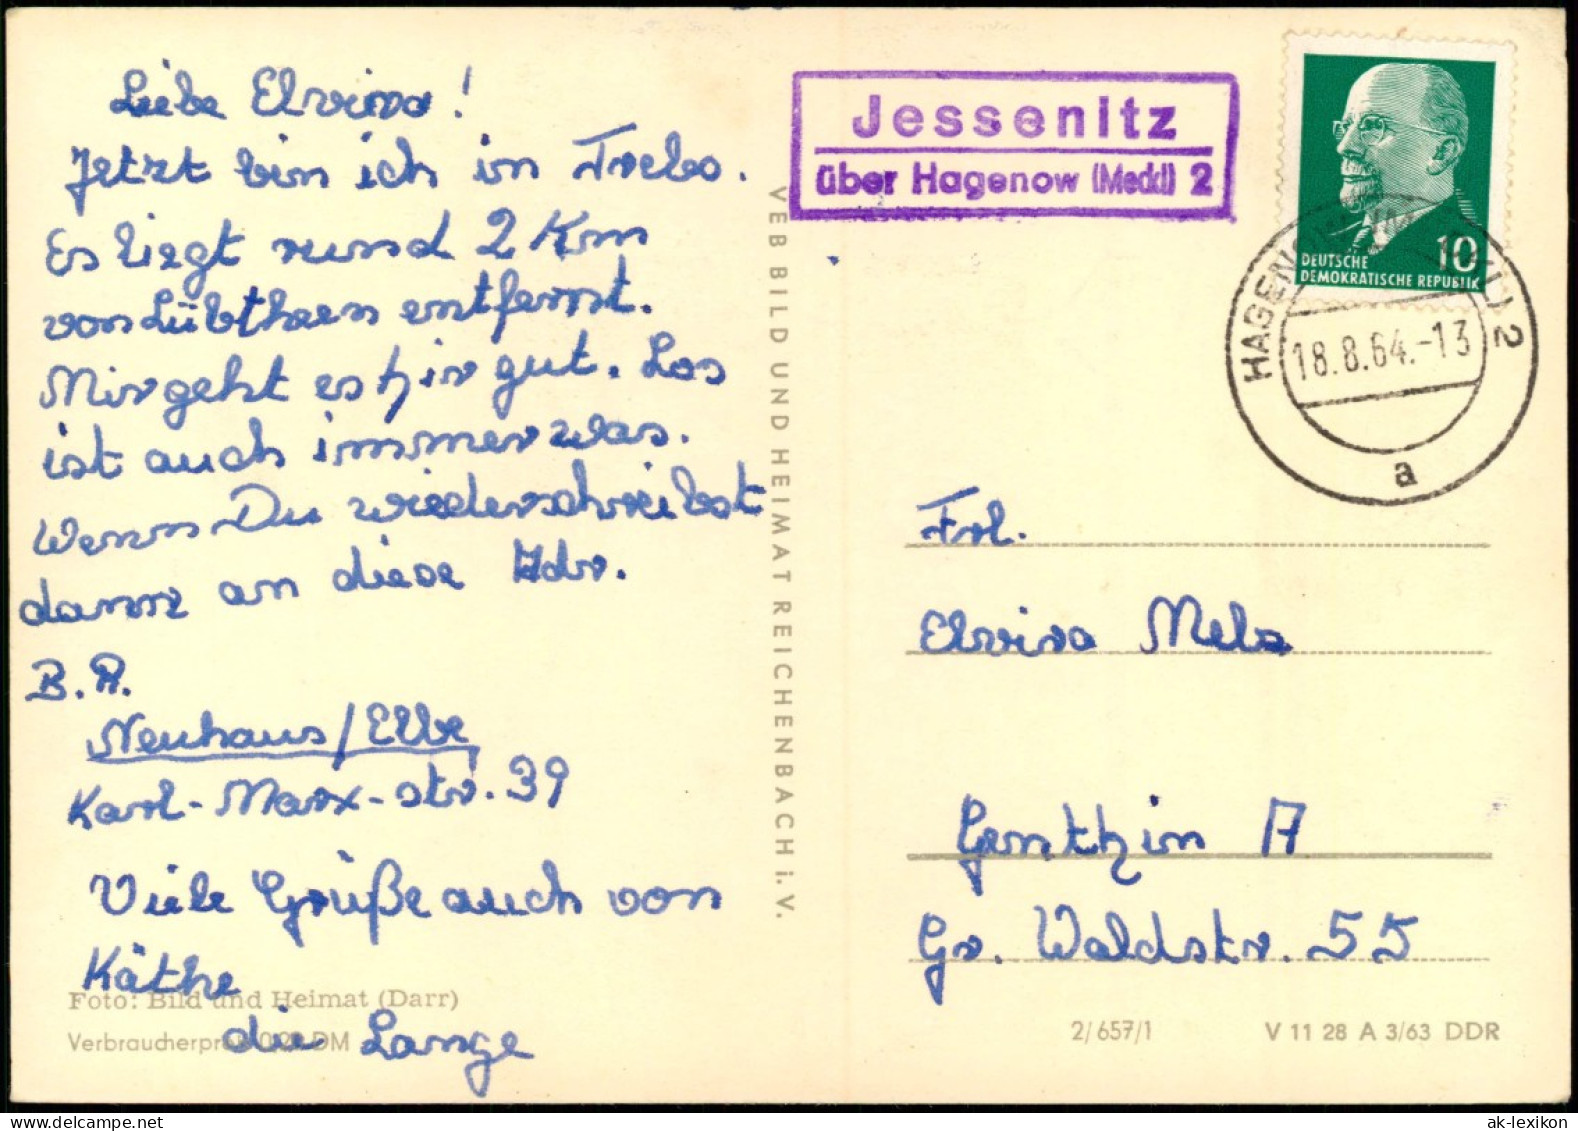 Liebe Elvira!
Jetzt bin ich in Trebs.
Es liegt rund 2 Km
von Lübtheen entfernt.
Mir geht es hir gut. Los
ist auch immer was.
Wenn Du wiederschreibst
dann an diese Adr.
B. R.
Neuhaus/Elbe
Karl-Marx-str. 39
Viele Grüße auch von
Käthe
die Lange
Foto: Bild und Heimat (Darr)
Verbraucherpreis 0,20 DM
VEB BILD UND HEIMAT REICHENBACH i. V.
Jessenitz
über Hagenow (Meckl) 2
DEUTSCHE
DEMOKRATISCHE REPUBLIK
10
HAGENOW (MECKL) 2
18.8.64.-13
a
Frl.
Elvira
Genthin A
Gr. Waldstr. 55
2/657/1
V 11 28 A 3/63 DDR
ak-lexikon